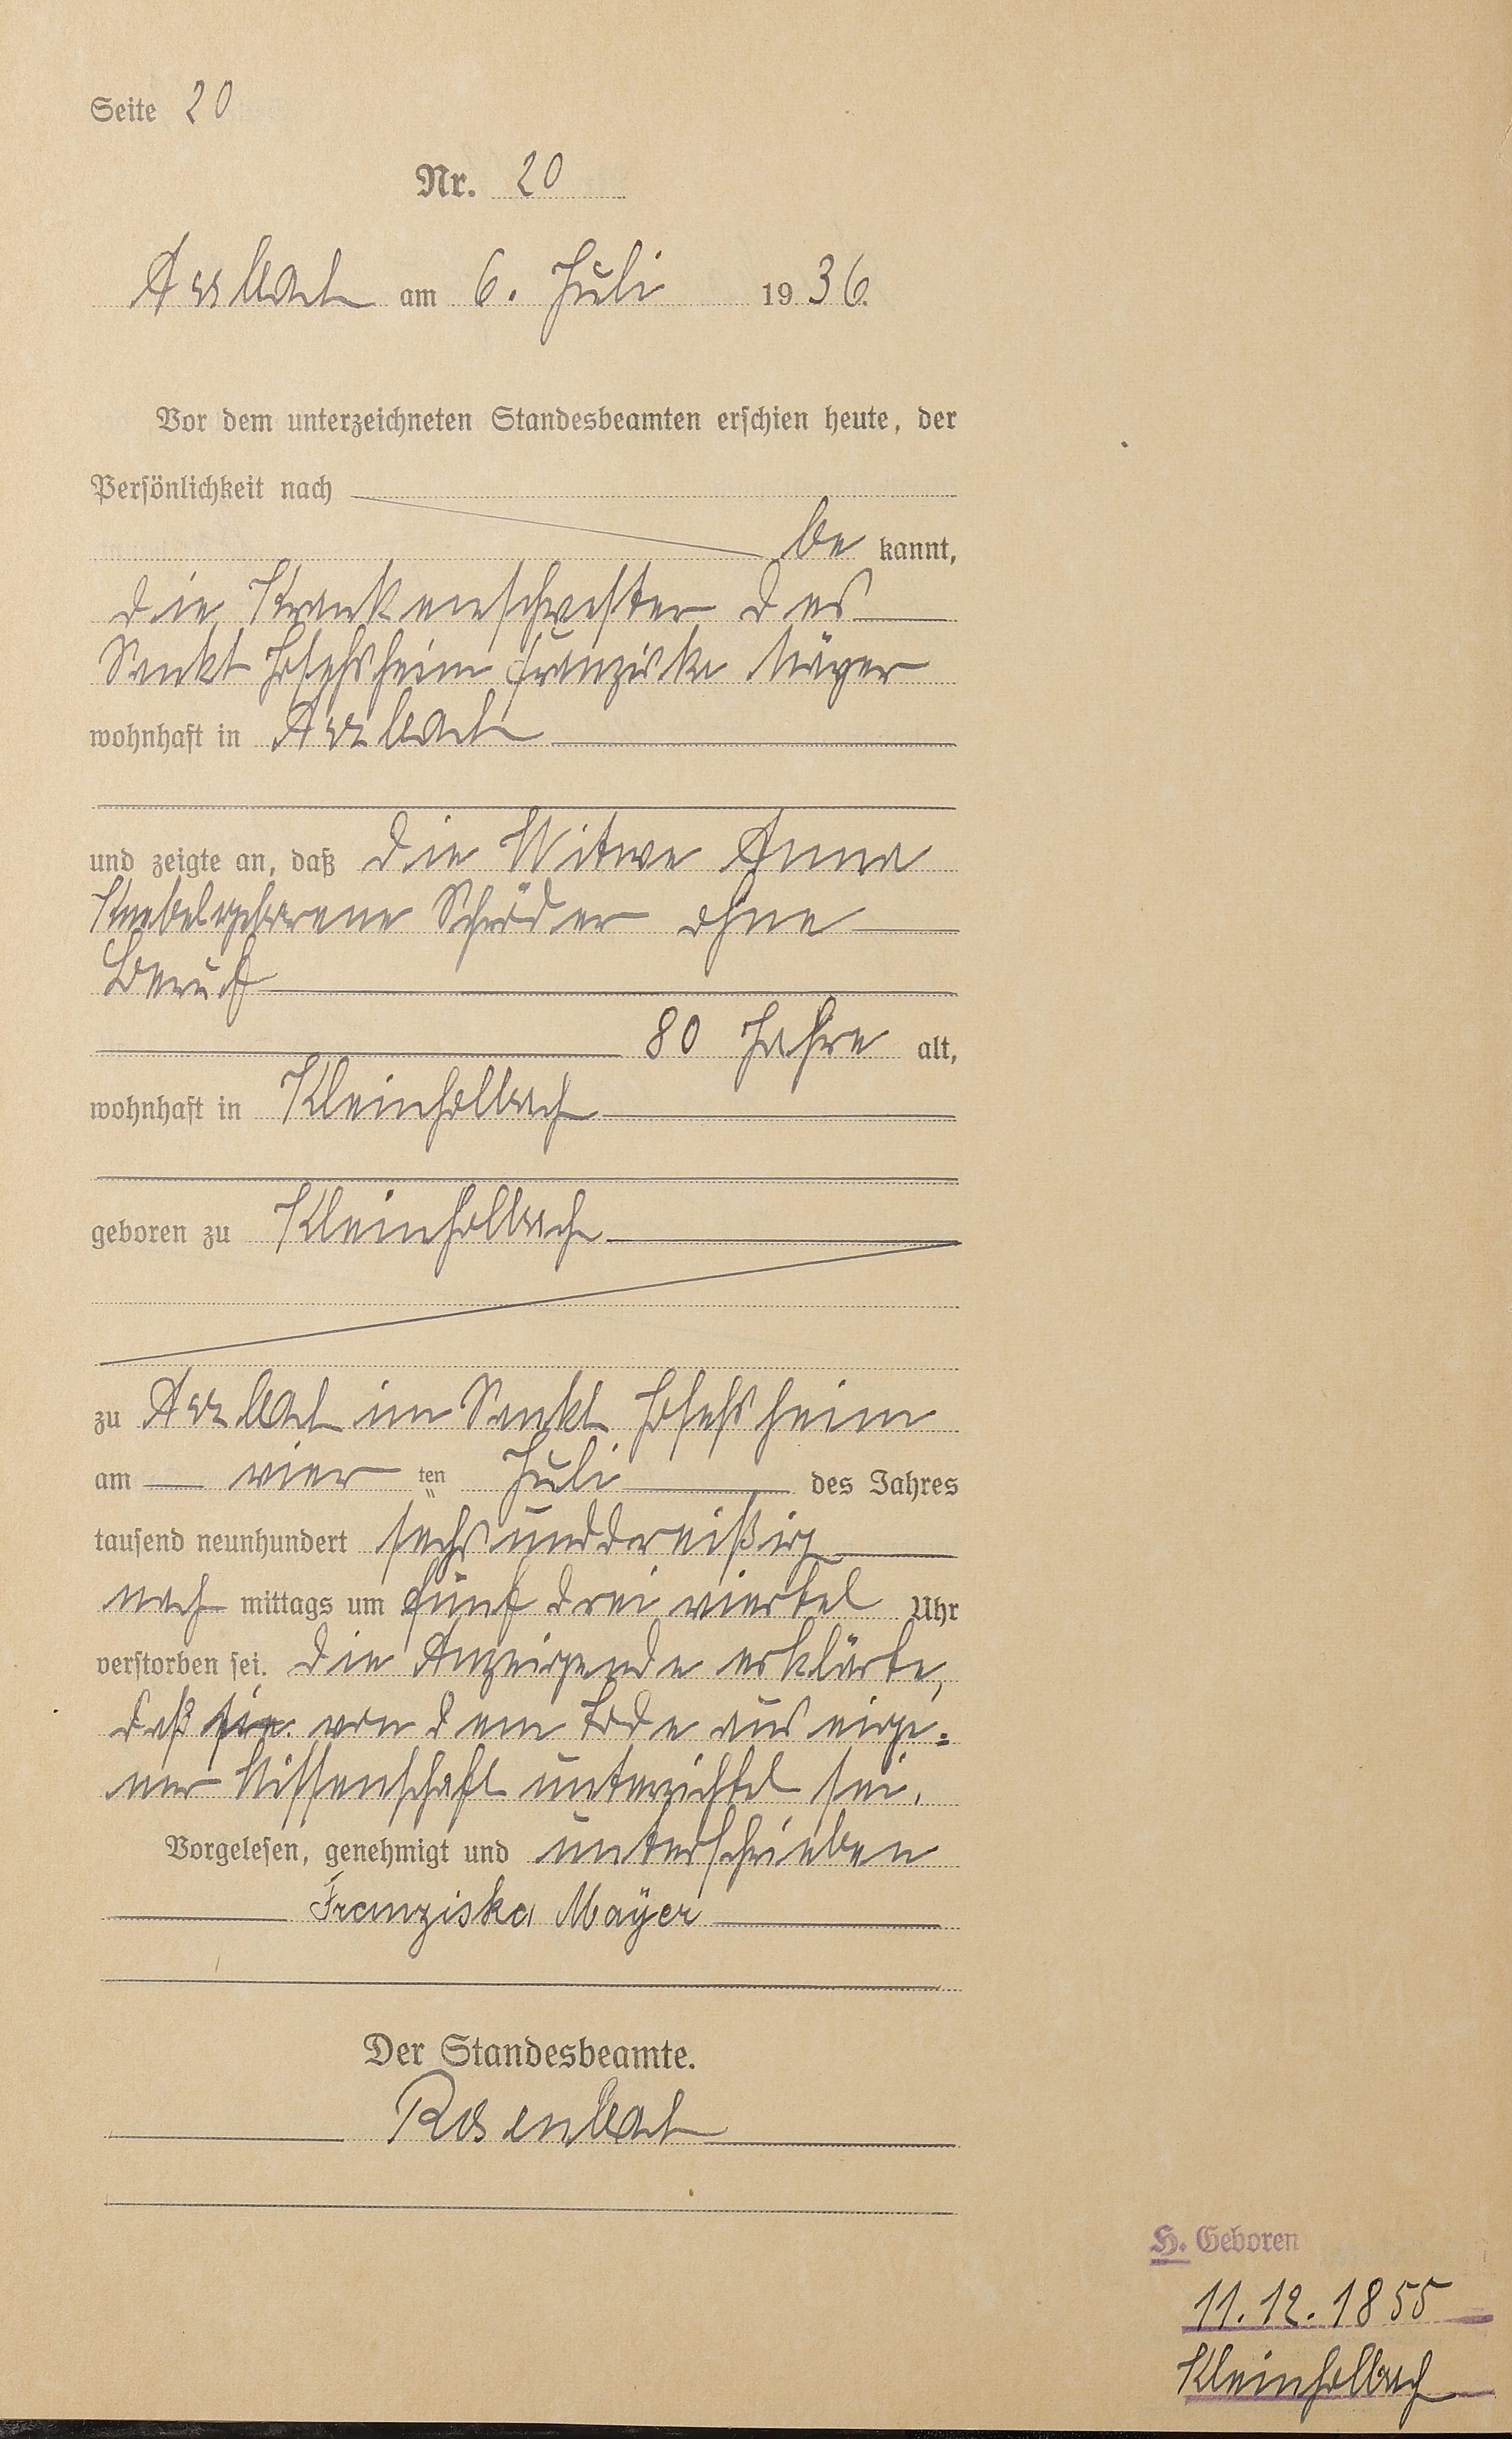 Seite 20
Nr. 20
Arzbach am 6. Juli 1936.
Vor dem unterzeichneten Standesbeamten erschien heute, der
Persönlichkeit nach
be kannt,
die Krankenschwester des
Sankt Josefsheim Franziska Mayer
wohnhaft in Arzbach
und zeigte an, daß die Witwe Anna
Knebel geborene Schröder ohne
Beruf
80 Jahre alt,
wohnhaft in Kleinholbach
geboren zu Kleinholbach
zu Arzbach im Sankt Josefsheim
am vier ten Juli des Jahres
tausend neunhundert sechsunddreißig
nach mittags um fünf drei viertel Uhr
verstorben sei. Die Anzeigende erklärte,
daß sie von dem Tode aus eige=
ner Wissenschaft unterrichtet sei.
Vorgelesen, genehmigt und unterschrieben
Franziska Mayer
Der Standesbeamte.
Rosenbach
H. Geboren
11.12.1855
Kleinholbach